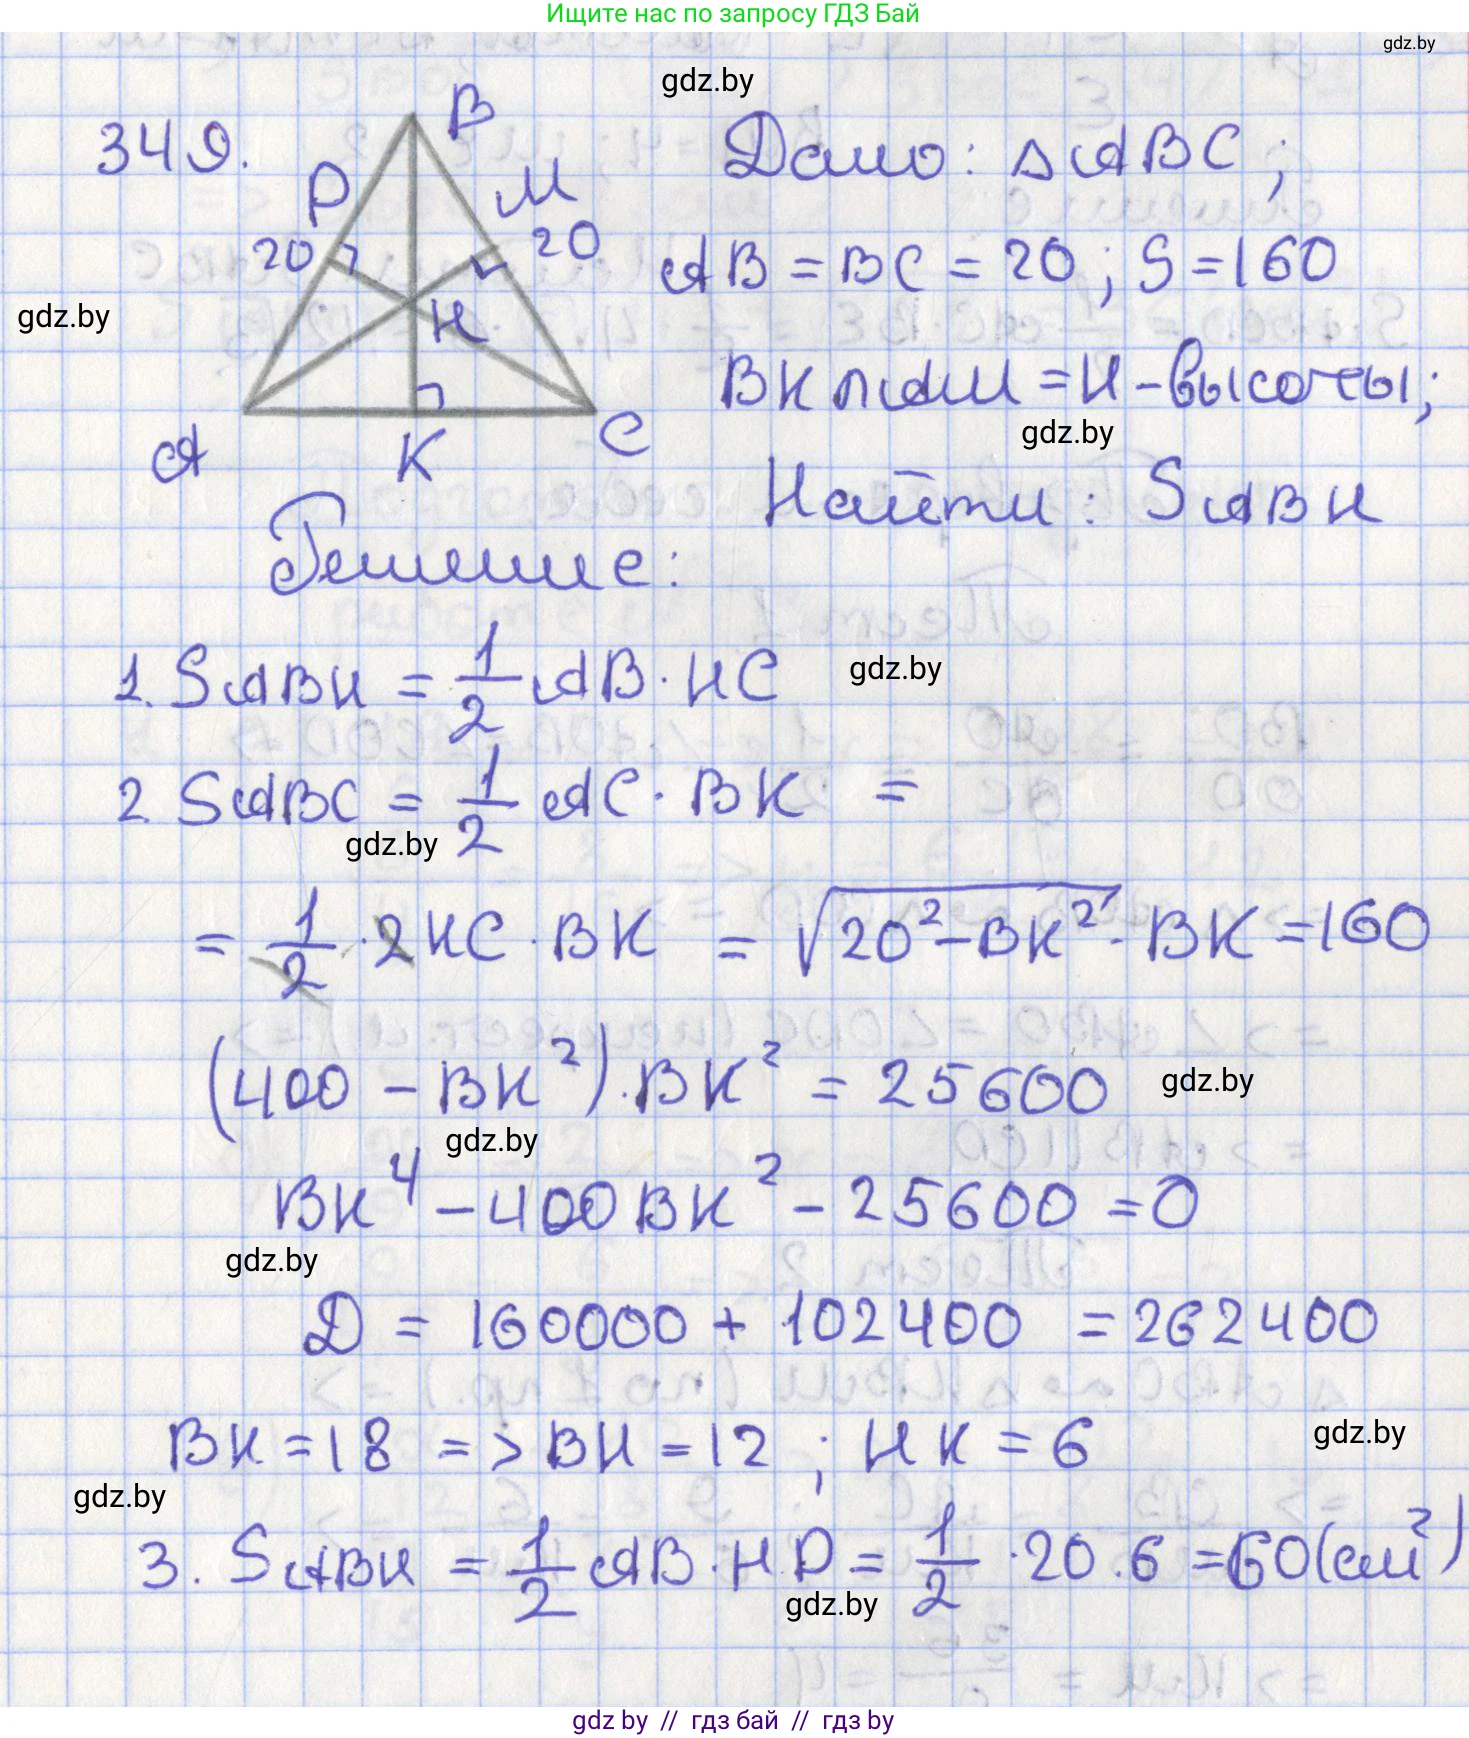 Ищите нас по запросу ГДЗ Бай
gdz.by
gdz.by
349.
B
P
M
20
20
H
A
K
C
Дано: △ABC;
AB = BC = 20; S = 160
gdz.by
BK ∩ AM = H - высоты;
gdz.by
Найти: SABH
Решение:
1. SABH = 1/2 AB · HC
gdz.by
2. SABC = 1/2 AC · BK =
gdz.by
= 1/2 · 2KC · BK = √(20² - BK²) · BK = 160
(400 - BK²) · BK² = 25600
gdz.by
gdz.by
BK⁴ - 400BK² - 25600 = 0
gdz.by
Д = 160000 + 102400 = 262400
BK = 18 => BH = 12; HK = 6
gdz.by
gdz.by
3. SABH = 1/2 AB · HP = 1/2 · 20 · 6 = 60 (см²)
gdz.by
gdz by // гдз бай // гдз by